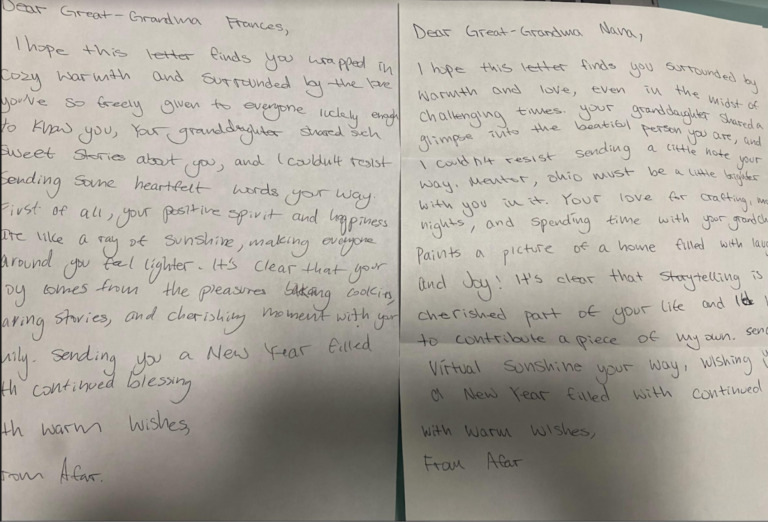 Dear Great-Grandma Frances,
I hope this letter finds you wrapped in
cozy warmth and surrounded by the love
you've so freely given to everyone luckly enough
to know you, Your granddaughter shared such
sweet stories about you, and I couldn't resist
Sending Some heartfelt words your way.
First of all, your positive spirit and happiness
are like a ray of sunshine, making everyone
around you feel lighter. It's clear that your
oy comes from the pleasures baking cookies,
aring stories, and cherishing moment with your
ily. Sending you a New Year filled
th continued blessing
th warm wishes,
rom Afar.
Dear Great-Grandma Nana,
I hope this letter finds you surrounded by
warmth and love, even in the midst of
challenging times. your granddaughter shared a
glimpse into the beatiful person you are, and
I couldn't resist sending a little note your
way. Mentor, ohio must be a little brighter
with you in it. Your love for crafting,
nights, and spending time with your grandch
Paints a picture of a home filled with lau
and Joy! It's clear that storytelling is
cherished part of your life and
to contribute a piece of my own. send
Virtual Sunshine your way, wishing y
a New Year filled with continued
with warm wishes,
From Afar